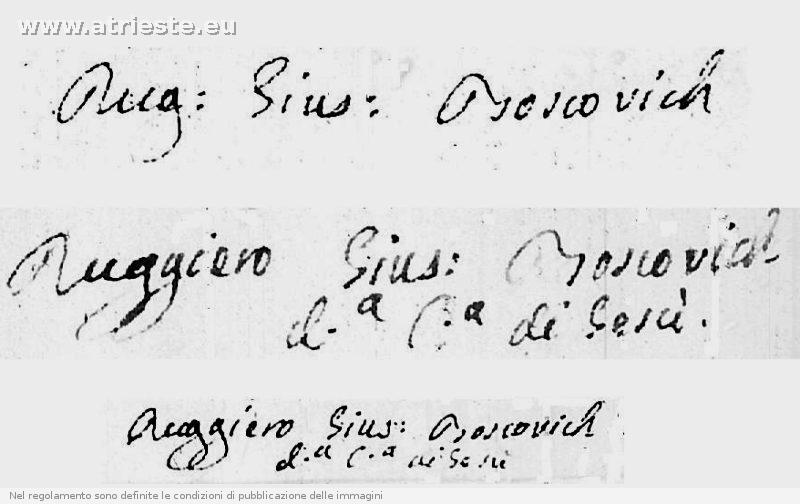 www.atrieste.eu
Rug: Gius: Boscovich
Ruggiero Gius: Boscovich
d.ª C.ª di Gesù.
Ruggiero Gius: Boscovich
d.ª C.ª di Gesù
Nel regolamento sono definite le condizioni di pubblicazione delle immagini